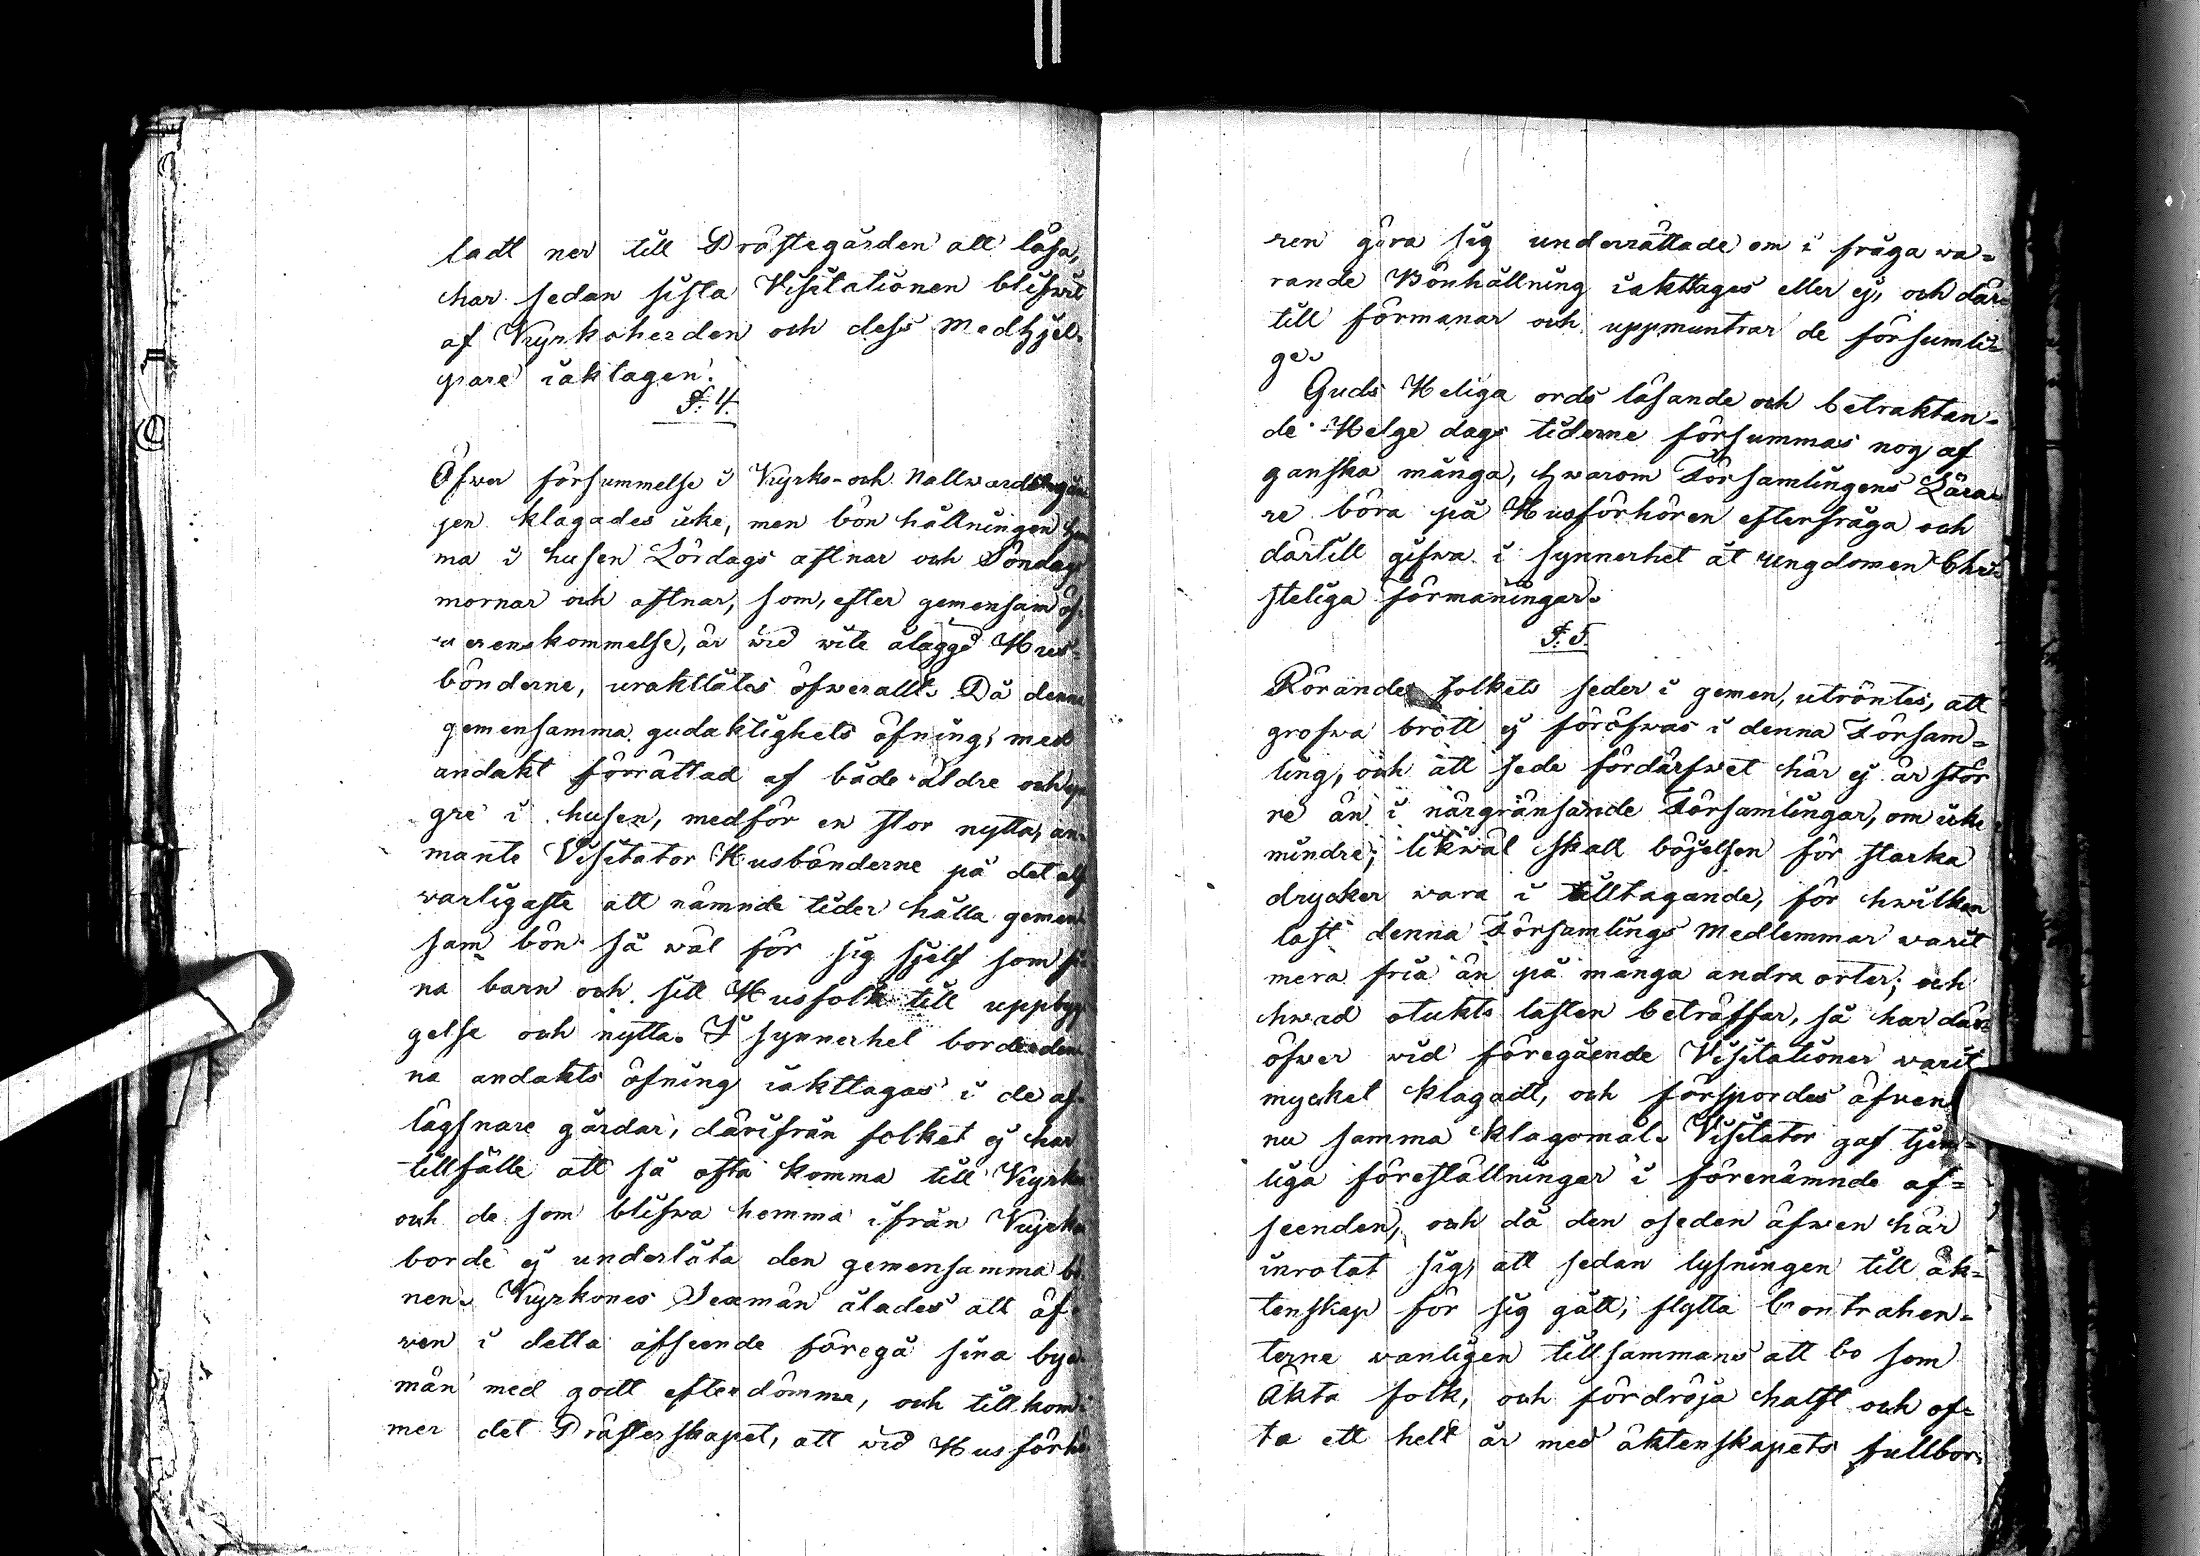 ladt ner till Prästegården att läsa,
har sedan sista Visitationen blifwit
af Kyrkoherden och dess Medhjel-
pare iaktagen.
§. 4.
Öfwer försummelse i Kyrko- och Nattwardsgån
jen klagades icke, men bön hållningen hem
ma i husen Lördags aftnar och Söndags
mornar och aftnar, som, efter gemensam öf-
werenskommelse, är wid wite ålaggd Hus-
bönderne, uraktlåtes öfwerallt. Då denna
gemensamma gudaktighets öfning, med
andakt förrättad af både äldre och yn
gre i husen, medför en stor nytta, an-
mante Visitator Husbönderne på det alf
warligaste att nämnde tider hålla gemen
sam bön så wäl för sig sjelf som si
na barn och sitt Husfolk till uppbyg
gelse och nytta. I synnerhet borde den
na andakts öfning iakttagas i de af-
lägsnare gårdar, därifrån folket ej har
tillfälle att så ofta komma till Kyrka
och de som blifwa hemma ifrån Kyrka
borde ej underlåta den gemensamma bö
nen. Kyrkones Sexmän ålades att äf
wen i detta afseende föregå sina bya-
män med godt efterdömme, och tillkom-
mer det Prästerskapet, att wid Husförhö
ren göra sig underrättade om i fråga wa-
rande Bönhållning iakttages eller ej, och där-
till förmanar och uppmuntrar de försumli-
ge.
Guds Heliga ords läsande och betraktan-
de Helge dags tiderne försummas nog af
ganska många, hwarom Församlingens Lära-
re böra på Husförhören efterfråga och
därtill gifwa i synnerhet åt Ungdomen Chri-
steliga förmaningar.
§. 5.
Rörande folkets seder i gemen, utröntes, att
grofwa brott ej föröfwas i denna Försam-
ling, och att sede fördärfwet här ej är stör
re än i närgränsande Församlingar, om icke
mindre; likwäl skall böjelsen för starka
drycker wara i tilltagande, för hwilken
last denna Församlings Medlemmar warit
mera fria än på många andra orter; och
hwad otukts lasten beträffar, så har där
öfwer wid föregående Visitationer warit
mycket klagadt, och förspordes äfwen
nu samma klagomål. Visitator gaf tjen-
liga föreställningar i förenämnde af-
seenden, och då den oseden äfwen här
inrotat sig, att sedan lysningen till äk-
tenskap för sig gått, flytta Contrahen-
terne wanligen tillsammans att bo som
Äkta folk, och fördröja halft och of-
ta ett helt år med äktenskapets fullbor-